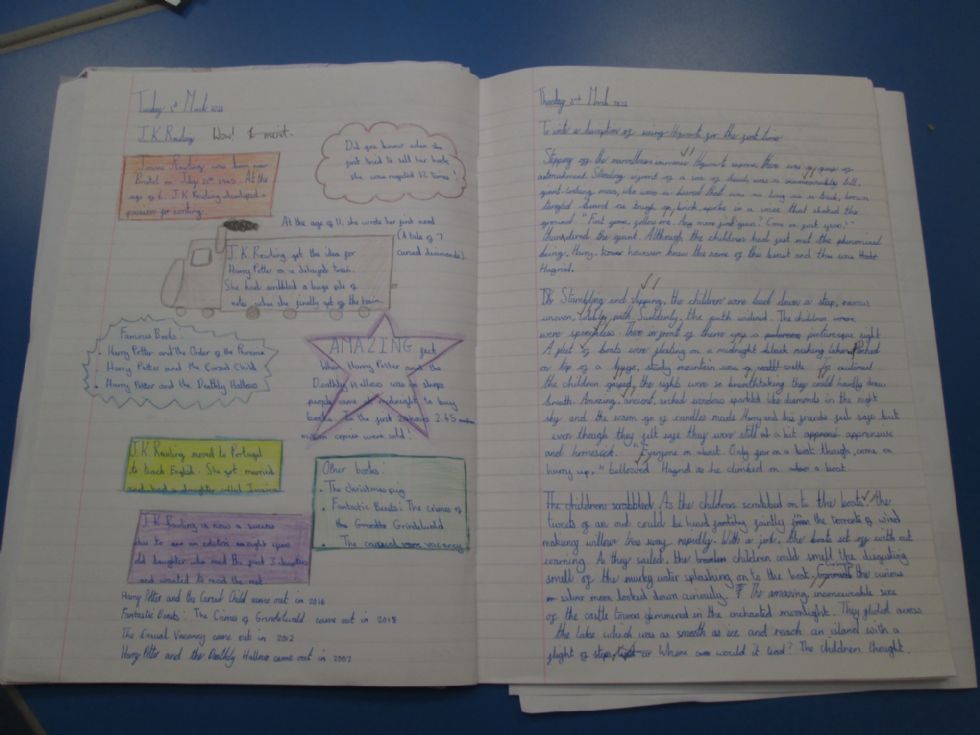 Tuesday 1st March 2022
J.K Rowling Wow! 1 merit.
Joanne Rowling was born near
Bristol on July 31st 1965. At the
age of 6, J.K Rowling developed a
passion for writing.
Did you know when she
first tried to sell her book
she was rejected 12 times!
At the age of 11, she wrote her first novel
(A tale of 7
cursed diamonds).
J.K. Rowling got the idea for
Harry Potter on a delayed train.
She had scribbled a huge pile of
notes when she finally got of the train.
Famous Books:
Harry Potter and the Order of the Phoenix
Harry Potter and the Cursed Child
Harry Potter and the Deathly Hallows
AMAZING fact
When Harry Potter and the
Deathly Hallows was in shops
people came at midnight to buy
books. In the first 24 hours 2.65
million copies were sold!
J.K Rowling moved to Portugal
to teach English. She got married
and had a daughter called Jessica
Other books:
The christmas pig
Fantastic Beasts: The Crimes of
the Grindelwald
The casual vacancy
J.K Rowling is now a success
due to an editors eight year
old daughter who read the first 3 chapters
and wanted to read the rest.
Harry Potter and the Cursed Child came out in 2016
Fantastic Beasts: The Crimes of Grindelwald came out in 2018
The Casual Vacancy came out in 2012
Harry Potter and the Deathly Hallows came out in 2007
Thursday 3rd March 2022
To write a description of seeing Hogwarts for the first time
Stepping off the marvellous Hogwarts express there was gasps of
astonishment. Standing infront of a sea of heads, was an immeasurably tall,
giant-looking man, who wore a beard that was as long as a
tangled beard as tough as brick, spoke in a voice that shook the
ground. "First years, follow me. Any more first years? Come on first years!"
thundered the giant. Although the children had just met the
being, Harry, however knew the name of the beast and that was
Hagrid.
Stumbling and slipping, the children were lead down a steep, narrow
uneven, path. Suddenly, the path widened. The children
were speechless. There in front of them was a picturesque sight
A fleet of boats were floating on a midnight black lake. Perched
on top of a huge, mountain was
the children gasped, the sights were so breathtaking they could hardly draw
breath. Amazing, ancient, arched windows sparkled like diamonds in the night
sky and the warm glow of candles made Harry and his friends feel safe but
even though they felt safe they were still a bit apprensive
and homesick. "Everyone in about. Only four in a boat though, come on
hurry up," bellowed Hagrid as he climbed in a boat
The childrens scrabbled. As the children scrabbled on to the boats the
hoots of an owl could be heard faintly from the torrents of wind
making willow trees sway rapidly. With a jerk, the boats set off with out
warning. As they sailed, the children could smell the disgusting
smell of the murky water splashing on to the boat. the curious
silver moon looked down curiously. The amazing, immeasurable size
of the castle towers glimmered in the enchanted moonlight. They glided across
the lake which was as smooth as ice and reach an island with a
flight of steps, Where would it lead? The children thought.